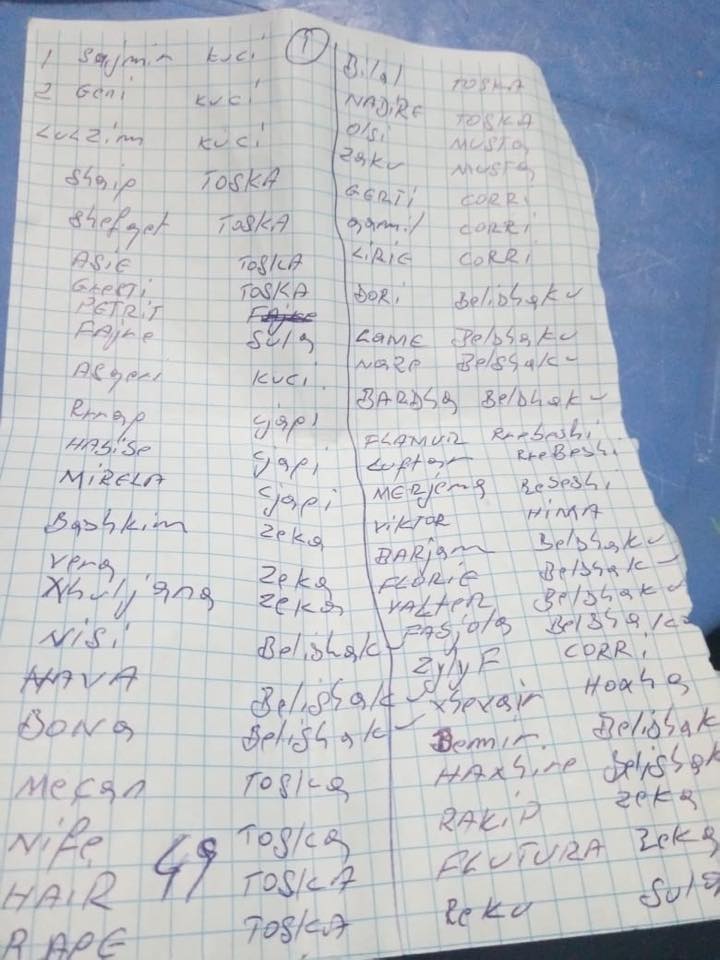 1
1 Sajmir Kuci
2 Geni Kuci
Lulzim Kuci
Shaip TOSKA
Shefqet TOSKA
ASiE TOSKA
TOSKA
PETRIT
FAjne Sula
Asqeri Kuci
Rrnap Gjapi
HABiSe Gjapi
MiRELA Gjapi
Bashkim Zeka
vera Zeka
Xhuljana Zeka
NiSi Belishak
HAVA Belishak
BONa Belishak
Mecan TOSKa
Nife TOSKa
49
HAiR TOSKA
RAPE TOSKA
Bilal TOSKA
NADiRE TOSKA
Olsi MUSTa
Zaku MUSTa
GERTi CORRi
qamil CORRi
LiRiE CORRi
DORi Belishaku
LAME Belshaku
NaZe Belshaku
BARDha Belshaku
FLAMUR RreBeshi
Luftar RreBeshi
MERjeme
ViKTOR HiMA
BARjam Belshaku
FLORiE Belshaku
VALTER Belshaku
FASjola Belshaku
ZylyF CORRi
Xhevair Hoxha
Bemir Belishak
HAxhire Belishak
RAKiP Zeka
FLUTURA Zeka
Zeku Sula